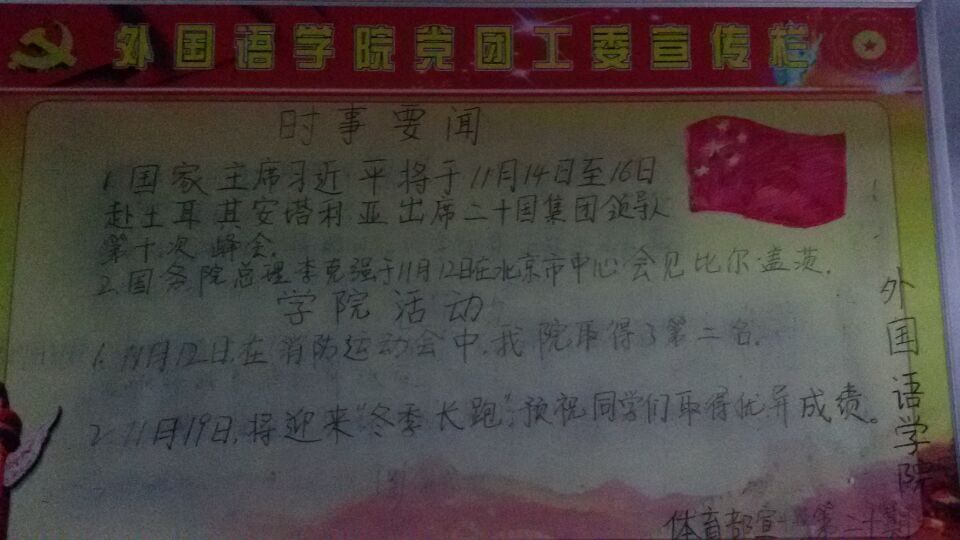 外国语学院党团工委宣传栏
时事要闻
1.国家主席习近平将于11月14日至16日
赴土耳其安塔利亚出席二十国集团领导人
第十次峰会.
2.国务院总理李克强于11月12日在北京市中心会见比尔盖茨.
学院活动
1.11月12日,在消防运动会中,我院取得了第二名.
2.11月19日,将迎来“冬季长跑”,预祝同学们取得优异成绩。
外国语学院
体育部宣 第二十期